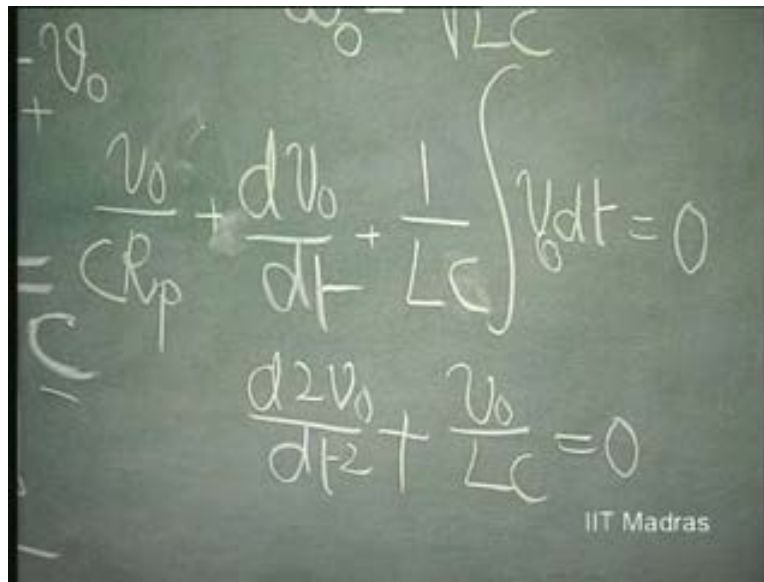 ω₀ = 1/√LC
- v₀
+
v₀/CRp + dv₀/dt + 1/LC ∫ v₀dt = 0
= C
d2v₀/dt2 + v₀/LC = 0
IIT Madras